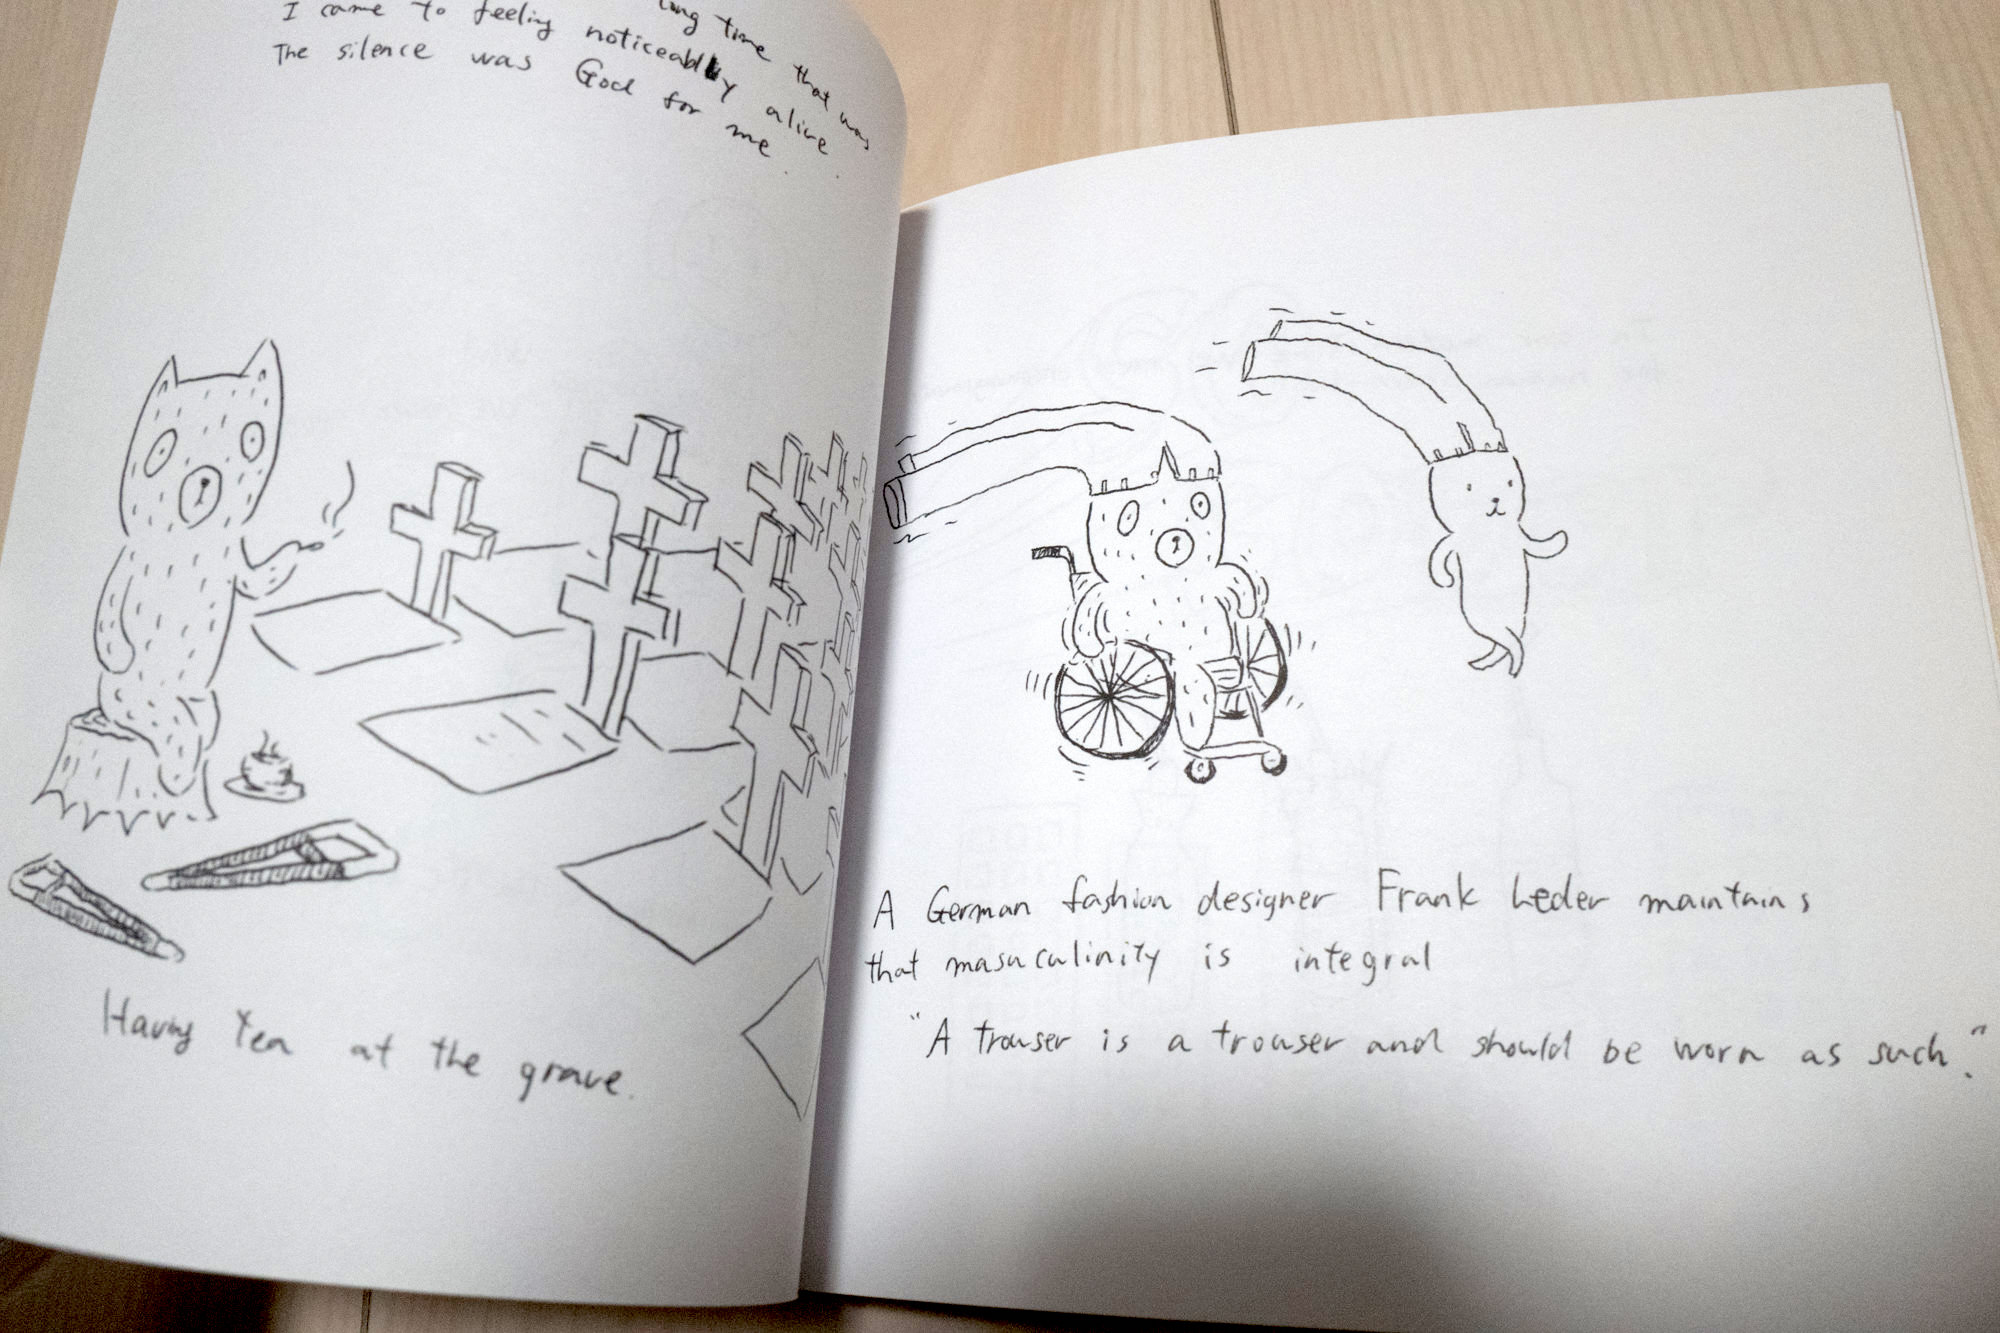 long time that was
I came to feeling noticeably alive.
The silence was God for me.
Having Tea at the grave.
A German fashion designer Frank Leder maintains
that masuculinity is integral
"A trouser is a trouser and should be worn as such."